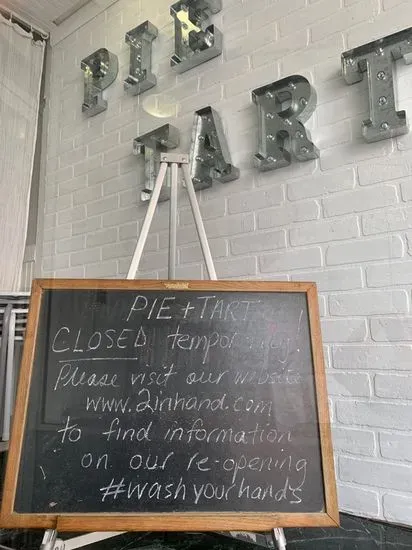 PIE
TART
PIE + TART
CLOSED temporarily!
Please visit our website
www.2inhand.com
to find information
on our re-opening
#washyourhands